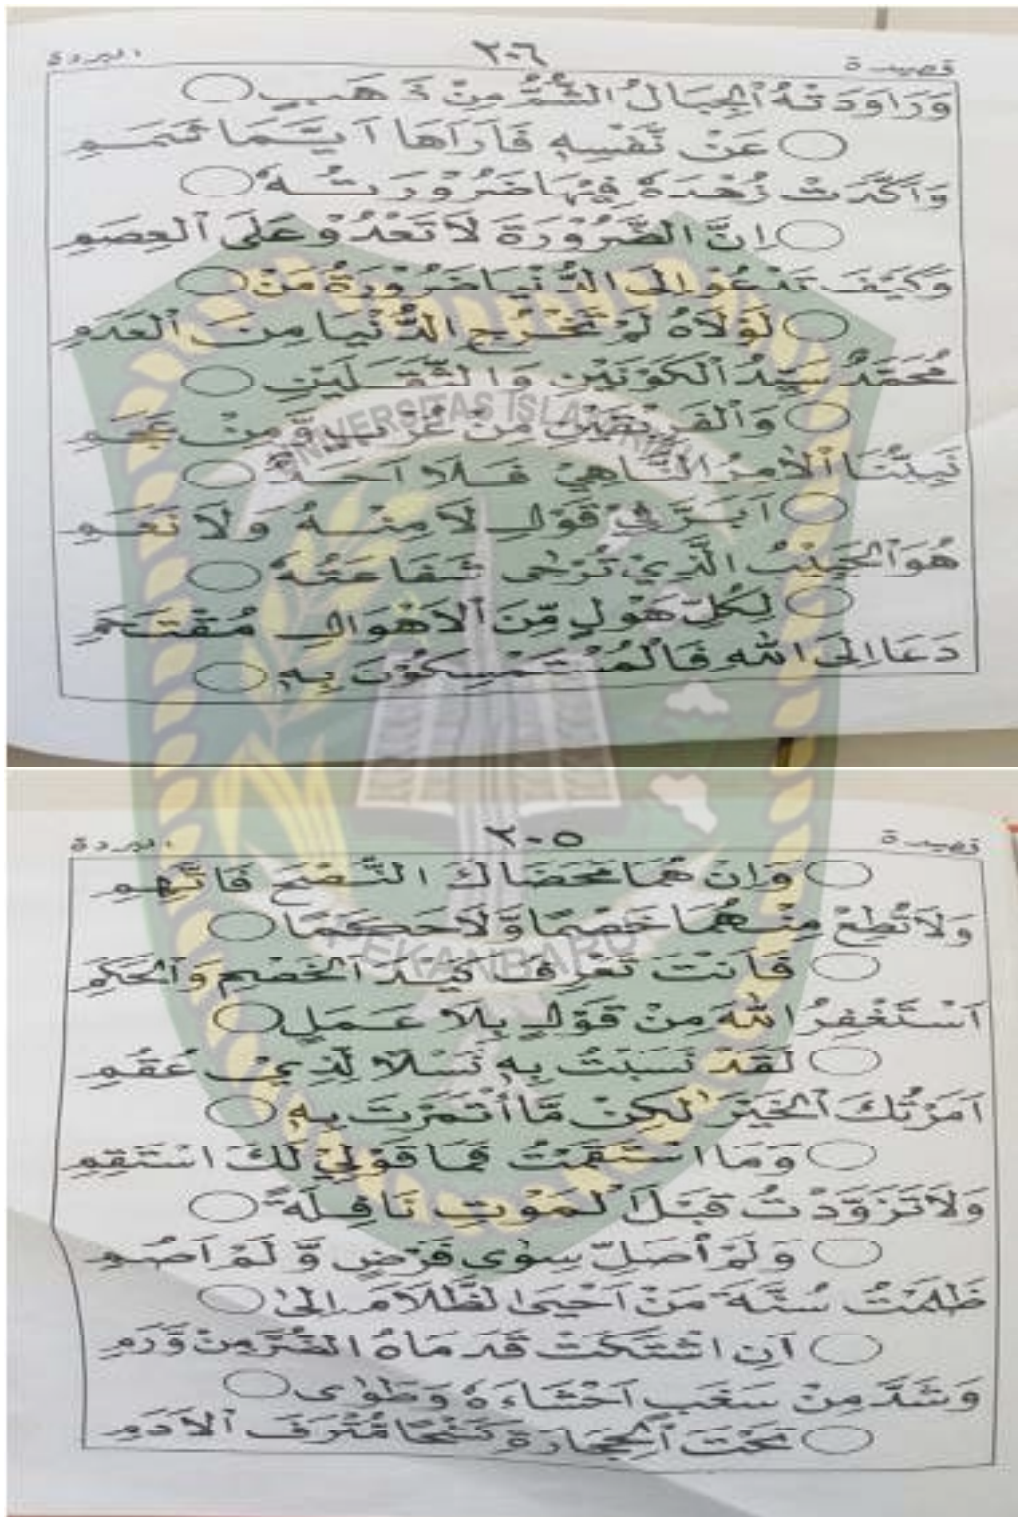 قصيدة ٢٠٦ البردة
وَرَاوَدَتْهُ ٱلْجِبَالُ الشُّمُّ مِنْ ذَهَبٍ
عَنْ نَّفْسِهِ فَأَرَاهَا اَيَّمَا شَمَمِ
وَاَكَّدَتْ زُهْدَهُ فِيْهَا ضَرُوْرَتُهُ
اِنَّ الضَّرُوْرَةَ لَا تَعْدُوْ عَلَى ٱلْعِصَمِ
وَكَيْفَ تَدْعُوْ اِلَى الدُّنْيَا ضَرُوْرَةُ مَنْ
لَوْلَاهُ لَمْ تَخْرُجِ الدُّنْيَا مِنَ ٱلْعَدَمِ
مُحَمَّدٌ سَيِّدُ ٱلْكَوْنَيْنِ وَالثَّقَلَيْنِ
وَٱلْفَرِيْقَيْنِ مِنْ عُرْبٍ وَّمِنْ عَجَمِ
نَبِيُّنَا ٱلْاٰمِرُ النَّاهِيْ فَلَا اَحَدٌ
اَبَرَّ فِيْ قَوْلِ لَا مِنْهُ وَلَا نَعَمِ
هُوَ ٱلْحَبِيْبُ الَّذِيْ تُرْجٰى شَفَاعَتُهُ
لِكُلِّ هَوْلٍ مِّنَ ٱلْاَهْوَالِ مُقْتَحَمِ
دَعَا اِلَى اللّٰهِ فَالْمُسْتَمْسِكُوْنَ بِهِ
قصيدة ٢٠٥ البردة
وَاِنْ هُمَا مَحَضَاكَ النُّصْحَ فَاتَّهِمِ
وَلَا تُطِعْ مِنْهُمَا خَصْمًا وَّلَا حَكَمًا
فَاَنْتَ تَعْرِفُ كَيْدَ ٱلْخَصْمِ وَٱلْحَكَمِ
اَسْتَغْفِرُ اللّٰهَ مِنْ قَوْلٍ بِلَا عَمَلٍ
لَقَدْ نَسَبْتُ بِهِ نَسْلًا لِّذِيْ عُقُمِ
اَمَرْتُكَ ٱلْخَيْرَ لٰكِنْ مَّا ٱئْتَمَرْتُ بِهِ
وَمَا اسْتَقَمْتُ فَمَا قَوْلِيْ لَكَ اسْتَقِمِ
وَلَا تَزَوَّدْتُ قَبْلَ ٱلْمَوْتِ نَافِلَةً
وَلَمْ اُصَلِّ سِوٰى فَرْضٍ وَّلَمْ اَصُمِ
ظَلَمْتُ سُنَّةَ مَنْ اَحْيَى الظَّلَامَ اِلٰى
اَنِ اشْتَكَتْ قَدَمَاهُ الضُّرَّ مِنْ وَّرَمِ
وَشَدَّ مِنْ سَغَبٍ اَحْشَاءَهُ وَطَوٰى
تَحْتَ ٱلْحِجَارَةِ كَشْحًا مُتْرَفَ ٱلْاَدَمِ
UNIVERSITAS ISLAM RIAU
PEKANBARU